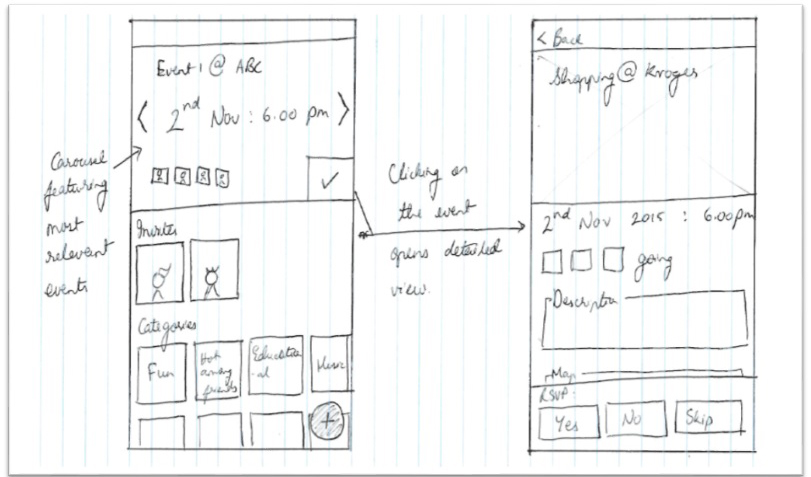 Event 1 @ ABC
< 2nd Nov : 6.00 pm >
Carousel
featuring
most
relevant
events
Invites
Categories
Fun
Hot
among
friends
Education
-al
Music
+
Clicking on
the event
opens detailed
view.
< Back
Shopping @ Kroger
2nd Nov 2015 : 6.00pm
going
Description
Map
RSVP:
Yes
No
Skip